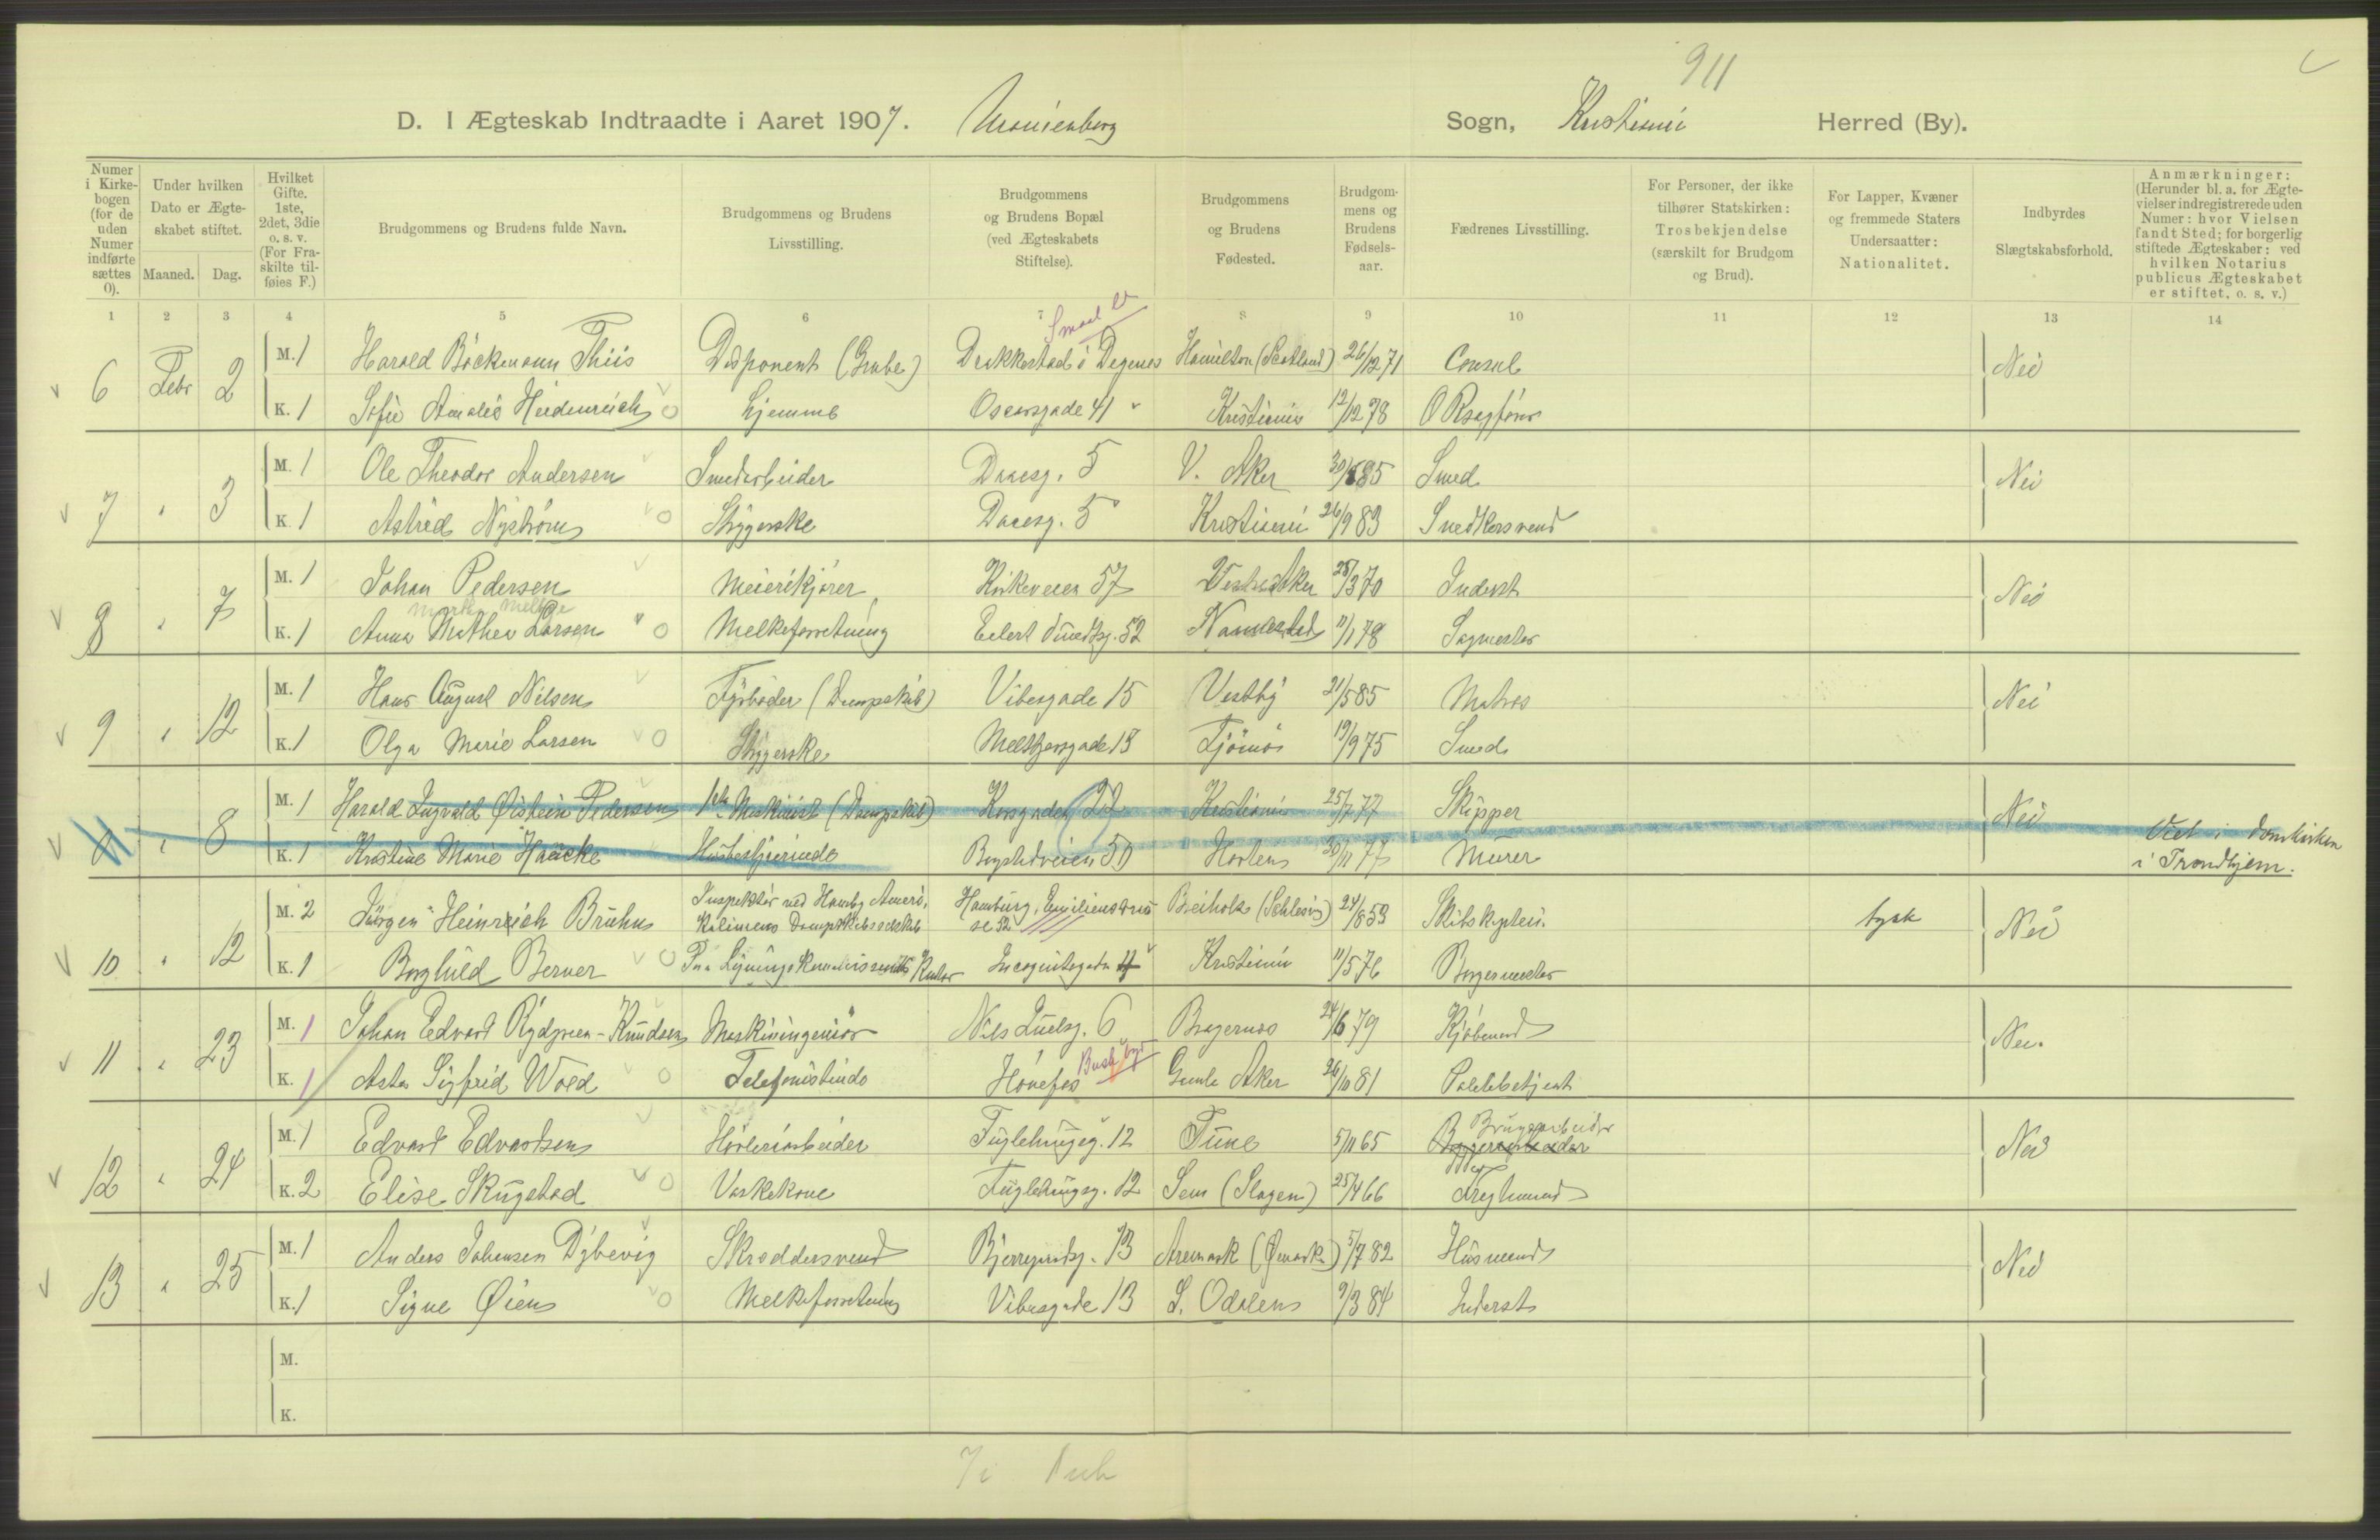 911
D. I Ægteskab Indtraadte i Aaret 1907. Uranienborg Sogn, Kristiania Herred (By).
Numer i Kirkebogen (for de uden Numer indførte sættes 0).
Under hvilken Dato er Ægteskabet stiftet.
Maaned. Dag.
Hvilket Gifte. 1ste, 2det, 3die o. s. v. (For Fraskilte tilføies F.)
Brudgommens og Brudens fulde Navn.
Brudgommens og Brudens Livsstilling.
Brudgommens og Brudens Bopæl (ved Ægteskabets Stiftelse).
Brudgommens og Brudens Fødested.
Brudgommens og Brudens Fødselsaar.
Fædrenes Livsstilling.
For Personer, der ikke tilhører Statskirken: Trosbekjendelse (særskilt for Brudgom og Brud).
For Lapper, Kvæner og fremmede Staters Undersaatter: Nationalitet.
Indbyrdes Slægtskabsforhold.
Anmærkninger: (Herunder bl. a. for Ægtevielser indregistrerede uden Numer: hvor Vielsen fandt Sted; for borgerlig stiftede Ægteskaber: ved hvilken Notarius publicus Ægteskabet er stiftet, o. s. v.)
1 2 3 4 5 6 7 8 9 10 11 12 13 14
6 Febr 2 M. 1 Harald Böckmann Thiis Disponent (Grube) Drikkestad i Degernes Hamilton (Scotland) 26/12 71 Consul Nei
K. 1 Sofie Amalie Heidenreich Hjemme Oscarsgade 41 Kristiania 12/12 78 O R sagfører
7 " 3 M. 1 Ole Theodor Andersen Smedarbeider Daaesg. 5 V. Aker 85 Smed Nei
K. 1 Astrid Nyström Strygerske Daaesg. 5 Kristiania 26/9 83 Snedkersvend
8 " 7 M. 1 Johan Pedersen Meierikjører Kirkeveien 57 Vestre Aker 25/3 70 Inderst Nei
K. 1 Anna Mathea Larsen Melkeforretning Eilert Sundtsg. 52 Nannestad 11/1 78 Sagmester
9 " 12 M. 1 Hans August Nilsen Fyrbøder (Dampskib) Vibesgade 15 Vestby 21/5 85 Matros Nei
K. 1 Olga Marie Larsen Strygerske Meltzersgade 13 Tjömö 19/9 75 Smed
" 8 M. 1 Harald Ingvald Øistein Pedersen Maskinist (Dampskib) Korsgaden 22 Kristiania 25/7 77 Skipper Nei
K. 1 Kristine Marie Haucke Husbestyrerinde Bogstadveien 50 Horten 30/11 77 Murer Viet i Domkirken
i Trondhjem.
10 " 12 M. 2 Jürgen Heinrich Bruhn Inspektør ved Hambg Ameri. Hamburg, Emilienstras Breiholz (Schlesvig) 24/8 53 Skibskaptein. tysk Nei
kaliniens Dampskibsselskab se 52
K. 1 Borghild Berner Paa Ligningskommissionens Kontor Incognitogaden Kristiania 11/5 76 Borgermester
11 " 23 M. 1 Johan Edvard Rydgren-Knudsen Maskiningeniør Niels Juelsg. 6 Bragernes 24/6 79 Kjøbmand Nei.
K. 1 Asta Sigfrid Wold Telefonistinde Hönefos Buskerud Gamle Aker 26/10 81 Politibetjent
12 " 24 M. 1 Edvard Edvardsen Høvleriarbeider Fuglehaugg. 12 Tune 5/11 65 Brugsarbeider Nei
K. 2 Elise Skugstad Vaskekone Fuglehaugg. 12 Sem (Slagen) 25/4 66
13 " 25 M. 1 Anders Johansen Dybevig Skræddersvend Bjerregaardsg. 13 Aremark (Ømark) 5/7 82 Husmand Nei
K. 1 Signe Øien Melkeforretning Vibesgade 13 S. Odalen 9/3 84 Inderst
M.
K.